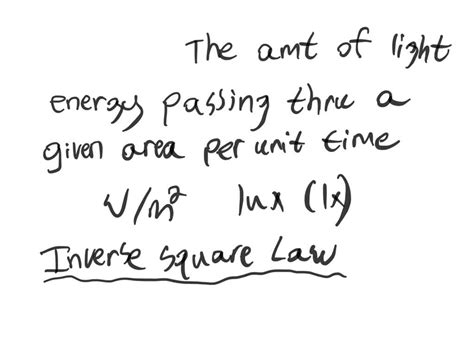 The amt of light
energy passing thru a
given area per unit time
W/m² lux (lx)
Inverse Square Law